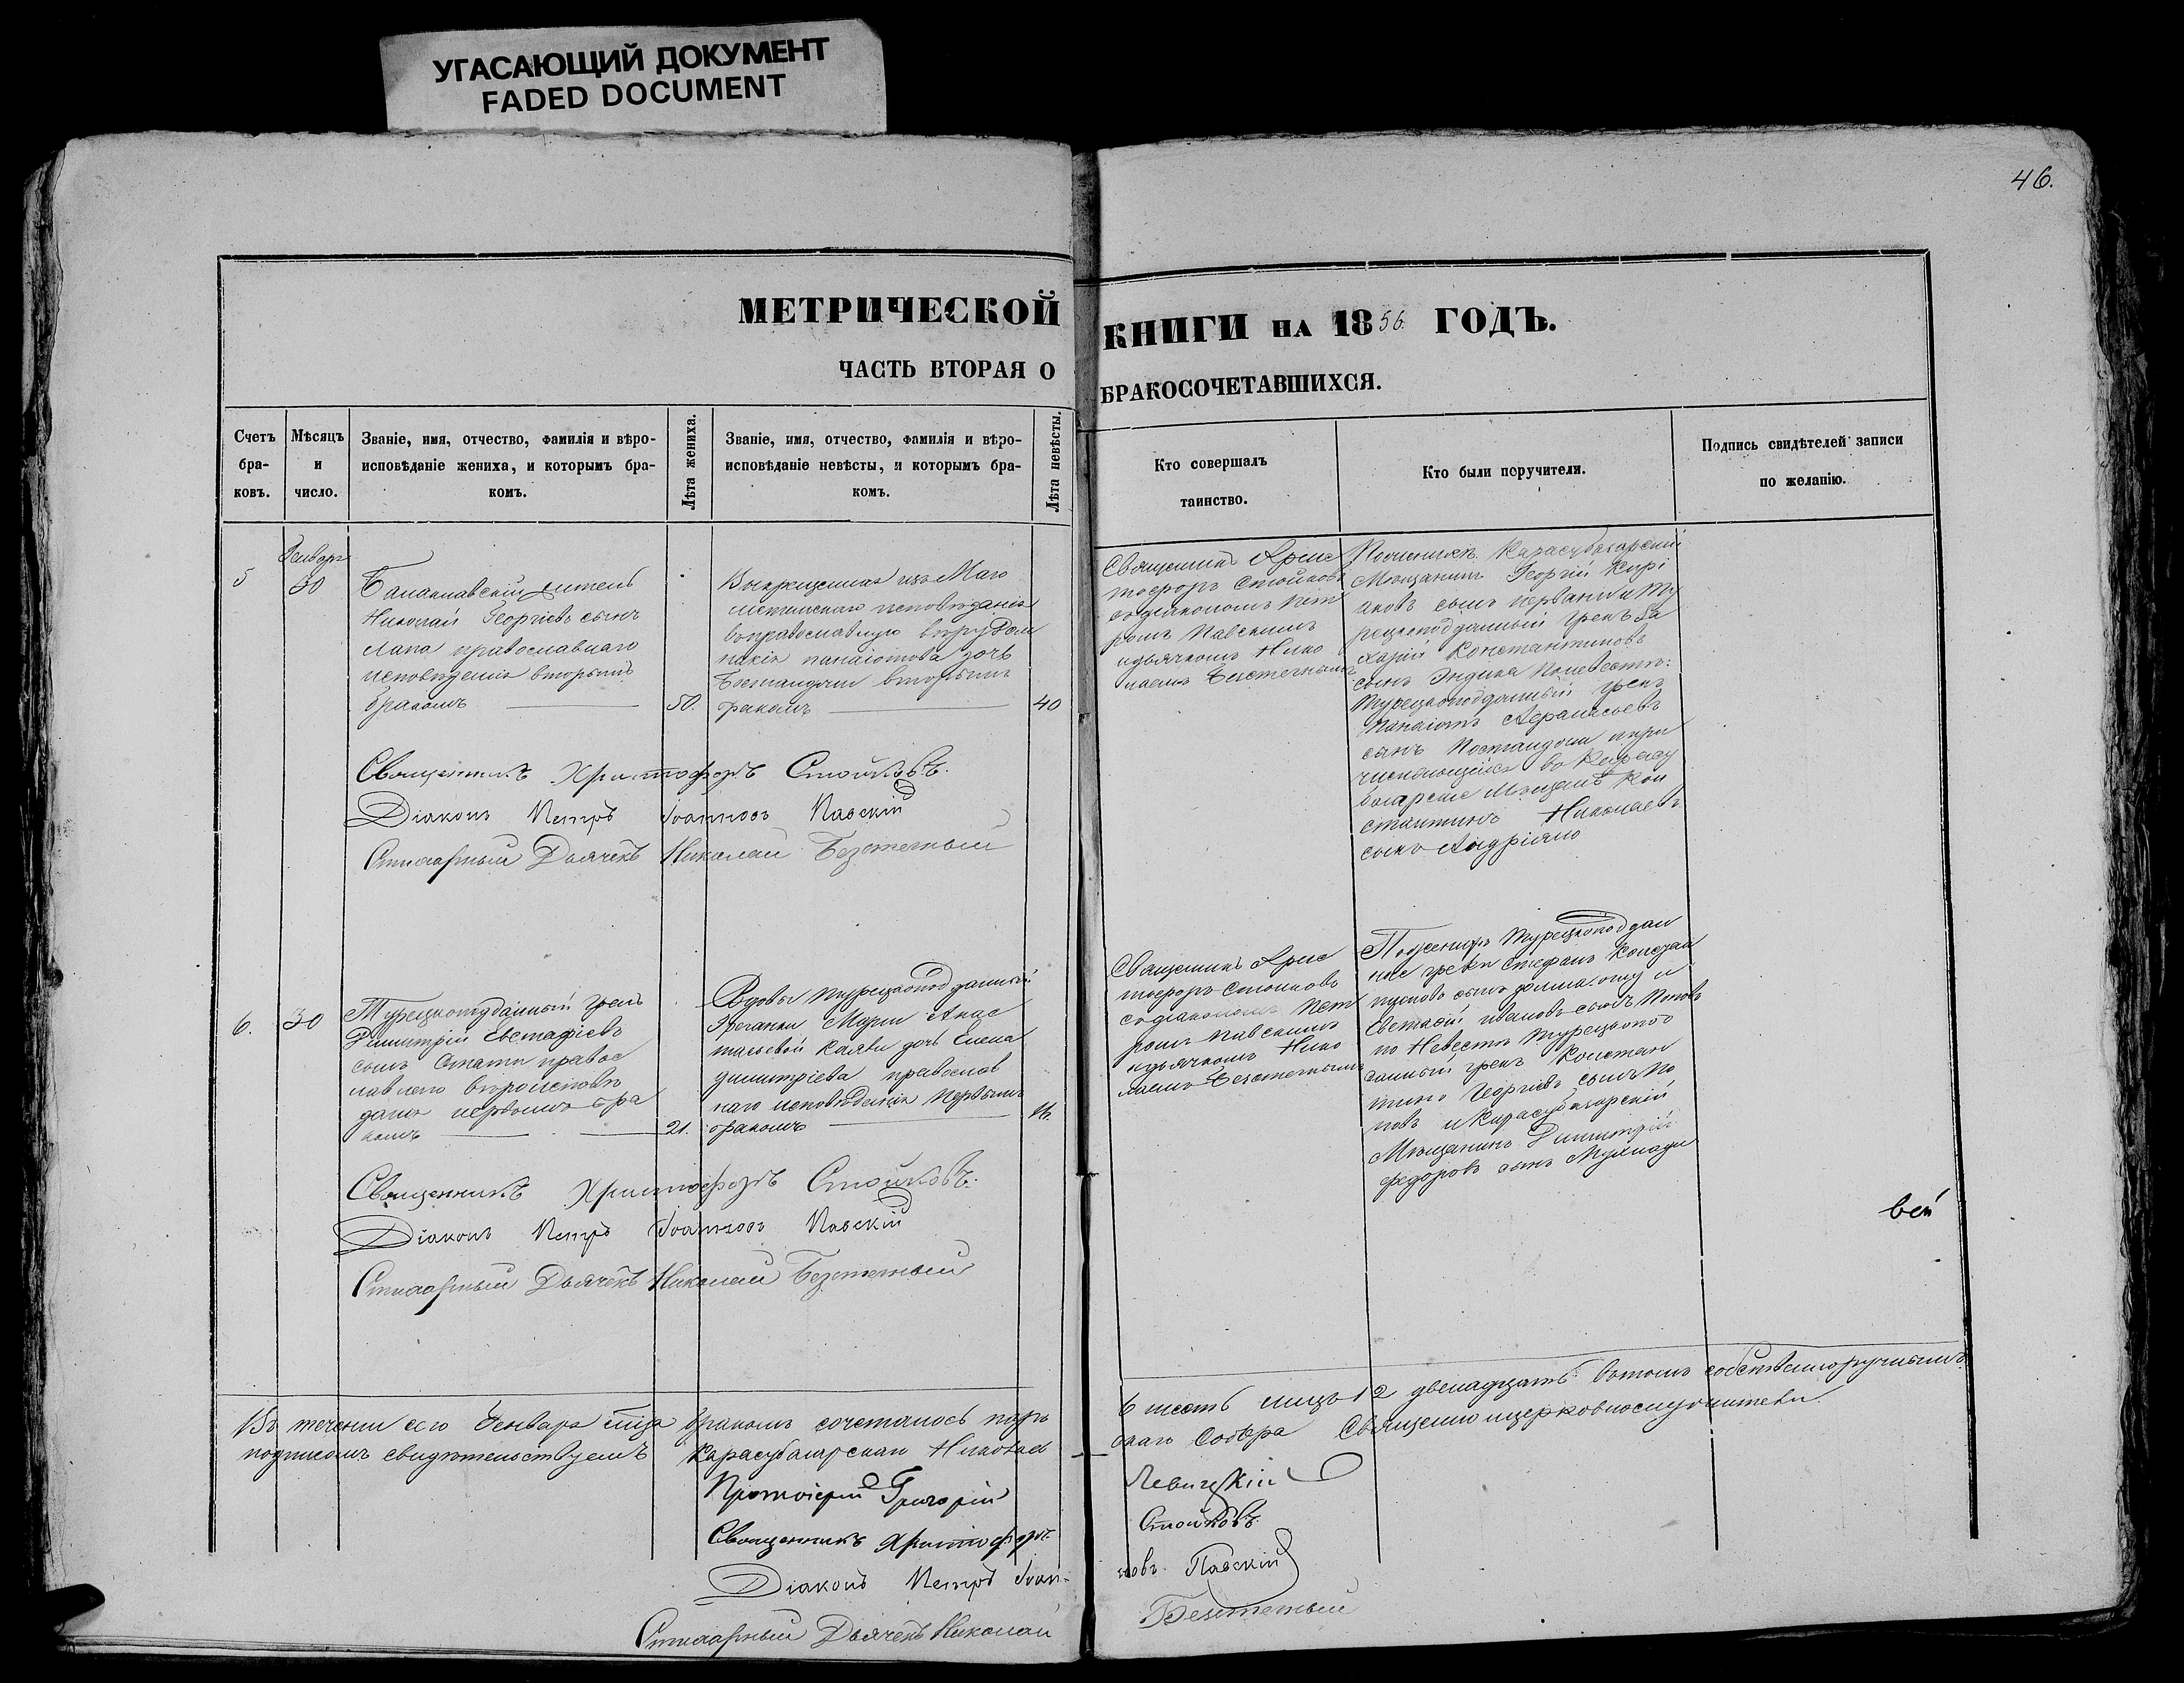 УГАСАЮЩИЙ ДОКУМЕНТ
FADED DOCUMENT
46.
МЕТРИЧЕСКОЙ КНИГИ НА 1856 ГОДЪ.
ЧАСТЬ ВТОРАЯ О БРАКОСОЧЕТАВШИХСЯ.
Счетъ
бра-
ковъ.
Мѣсяцъ
и
число.
Званіе, имя, отчество, фамилія и вѣро-
исповѣданіе жениха, и которымъ бра-
комъ.
Лѣта жениха.
Званіе, имя, отчество, фамилія и вѣро-
исповѣданіе невѣсты, и которымъ бра-
комъ.
Лѣта невѣсты.
Кто совершалъ
таинство.
Кто были поручители.
Подпись свидѣтелей записи
по желанію.
5
Генваря
30
Балаклавскій житель
Николай Георгіевъ сынъ
Лапа православнаго
исповѣденія вторымъ
бракомъ
50.
Выкрещенная изъ Маго
метанскаго исповѣданія
въ православную вѣру
панаіотова дочь
вторымъ
бракомъ
40
Священникъ Хрис
тофоръ Стойковъ
съ діакономъ Пет
ромъ Павскимъ
и дьячкомъ Нико
лаемъ Безстетнымъ
Карасубазарскій
Мѣщанинъ Георгій Кирі
аковъ сынъ и Ту
рецкоподданный грекъ За
харій Константиновъ
сынъ По невестѣ:
Турецкоподданный грекъ
Панаіотъ Афанасьевъ
сынъ и при
числяющійся въ Карасу
базарскіе Мѣщане Кон
стантинъ Николаевъ
сынъ Андріяно
Священникъ Христофоръ Стойковъ.
Діаконъ Петръ Іоанновъ Павскій
Стихарный Дьячекъ Николай Безстетный
6.
30
Турецкоподданный грекъ
Димитрій Евстафіевъ
сынъ Стати правос
лавнаго вѣроисповѣ
данія первымъ бра
комъ
21.
Вдовы Турецкоподданной
Гречанки Маріи Анас
тасьевой дочь Елена
Димитріева православ
наго исповѣденія первымъ
бракомъ
16.
Священникъ Хрис
тофоръ Стойковъ
съ діакономъ Пет
ромъ Павскимъ
и дьячкомъ Нико
лаемъ Безстетнымъ
По женихѣ Турецкоподдан
ные греки Стефанъ Констан
тиновъ сынъ и
Евстафій Ивановъ сынъ Поповъ
по Невестѣ Турецкопод
данный грекъ Констан
тинъ Георгіевъ сынъ По
повъ и Карасубазарскій
Мѣщанинъ Димитрій
Федоровъ сынъ
Священникъ Христофоръ Стойковъ.
Діаконъ Петръ Іоанновъ Павскій
Стихарный Дьячекъ Николай Безстетный
Въ теченіи сего Генваря м-ца бракомъ сочеталось паръ 6 шесть лицъ 12 двенадцать: въ томъ собственноручнымъ
подписомъ свидѣтельствуемъ Карасубазарскаго Николаевскаго Собора Священноцерковнослужители.
Протоіерей Григорій Левицкій
Священникъ Христофоръ Стойковъ.
Діаконъ Петръ Іоанновъ Павскій
Стихарный Дьячекъ Николай Безстетный